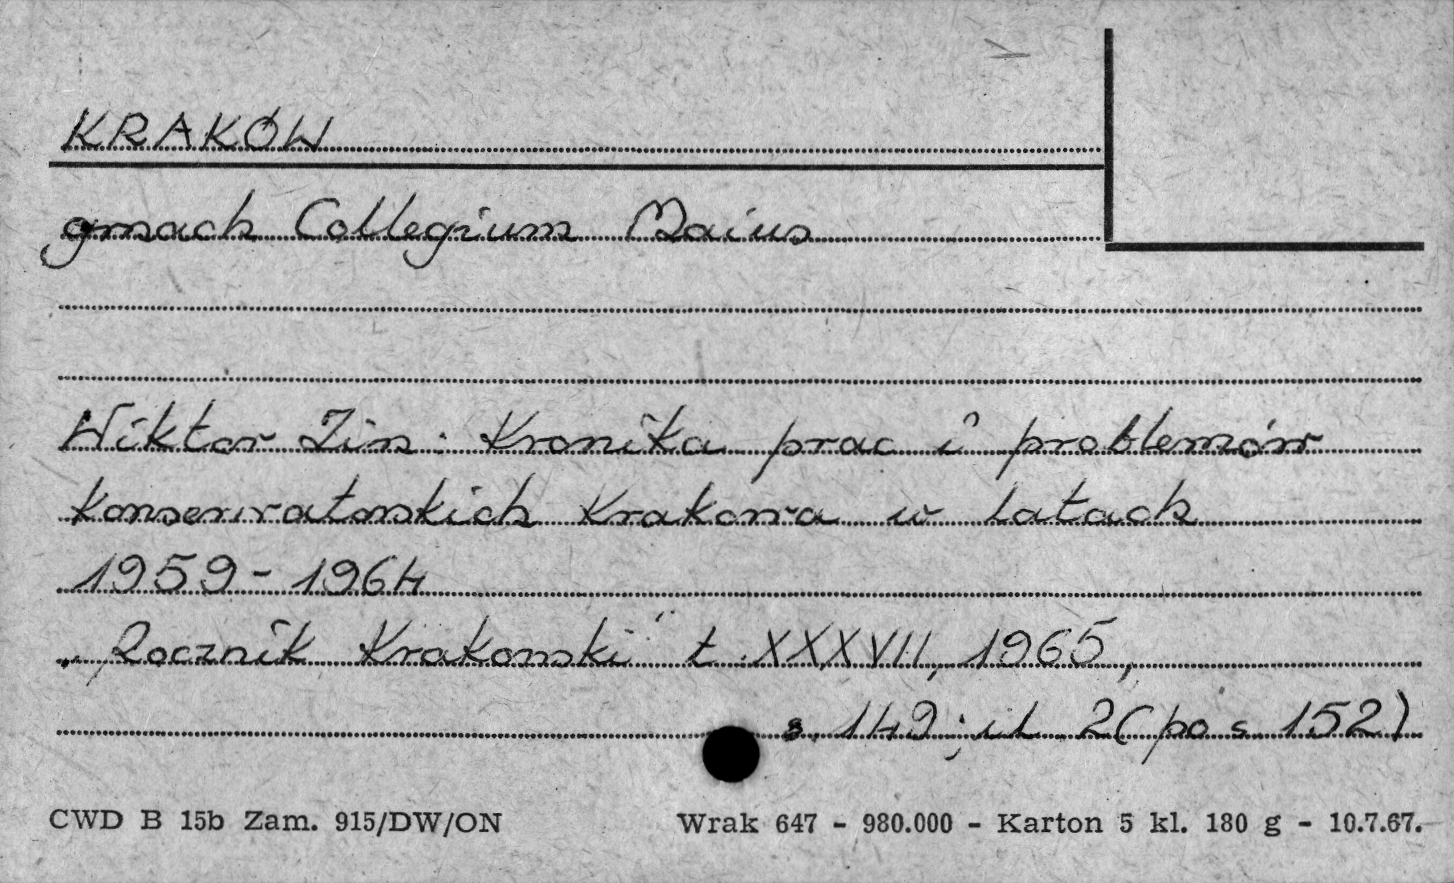 KRAKÓW
gmach Collegium Maius
Wiktor Zin: Kronika prac i problemów
konserwatorskich Krakowa w latach
1959 - 1964
„Rocznik Krakowski" t. XXXVII, 1965,
s. 149; il. 2 (po s. 152)
CWD B 15b Zam. 915/DW/ON Wrak 647 - 980.000 - Karton 5 kl. 180 g - 10.7.67.